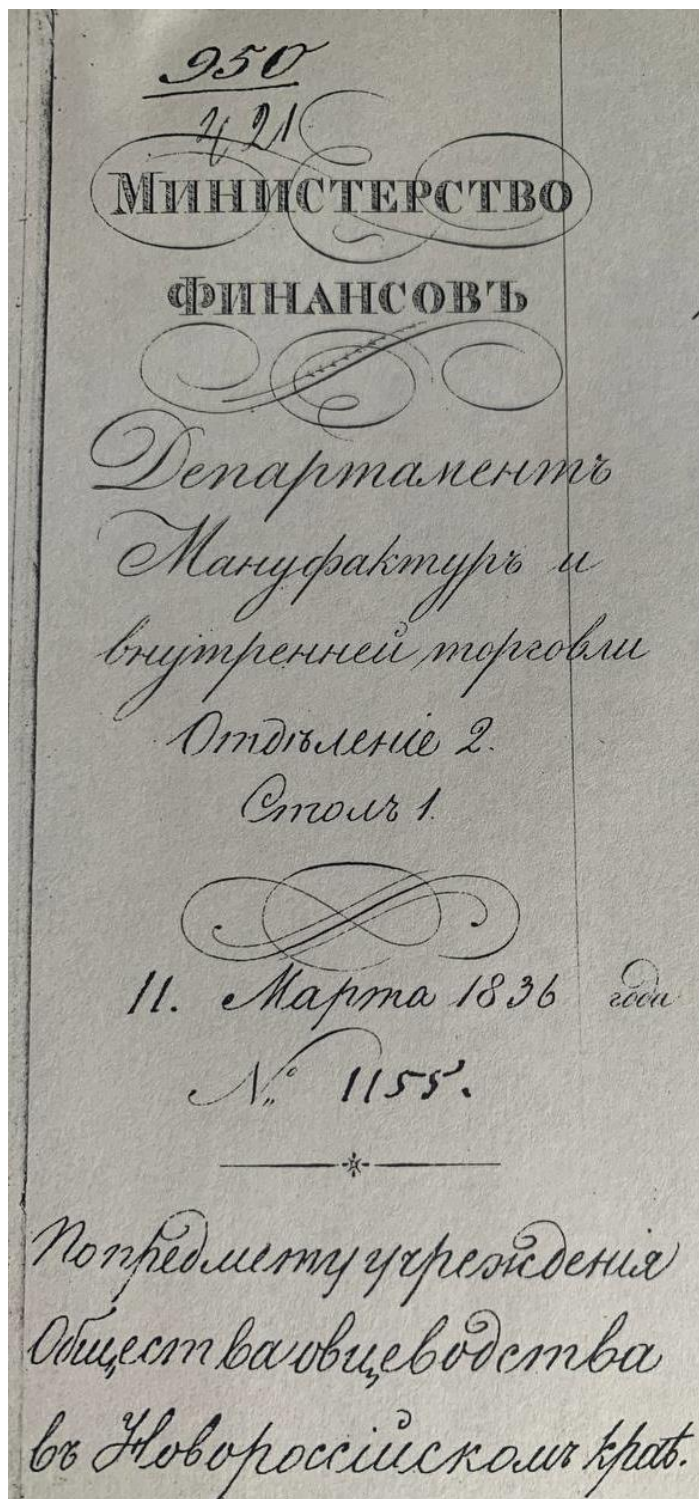 950
ч 21
Министерство
Финансовъ
Департаментъ
Мануфактуръ и
внутренней торговли
Отдѣленіе 2.
Столъ 1.
11. Марта 1836 года
№ 1155.
По предмету учреждения
Общества овцеводства
въ Новороссійскомъ краѣ.